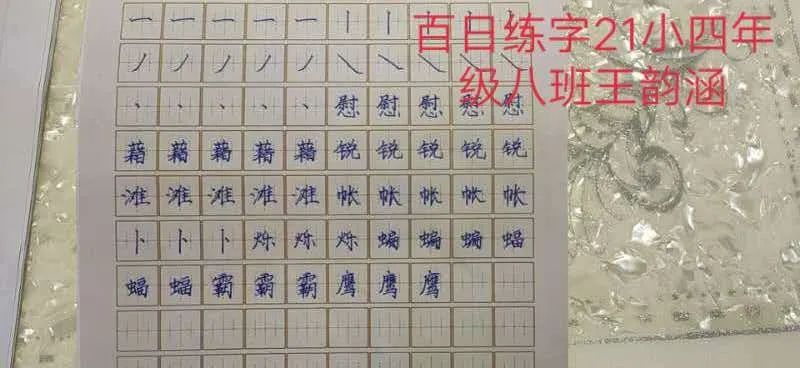 百日练字21小四年
级八班王韵涵
一 一 一 一 一 丨 丨 丨 丨 丨
丿 丿 丿 丿 丿 ㇏ ㇏ ㇏ ㇏ ㇏
丶 丶 丶 丶 丶 慰 慰 慰 慰 慰
藉 藉 藉 藉 藉 锐 锐 锐 锐 锐
滩 滩 滩 滩 滩 帐 帐 帐 帐 帐
卜 卜 卜 烁 烁 烁 蝙 蝙 蝙 蝠
蝠 蝠 霸 霸 霸 鹰 鹰 鹰